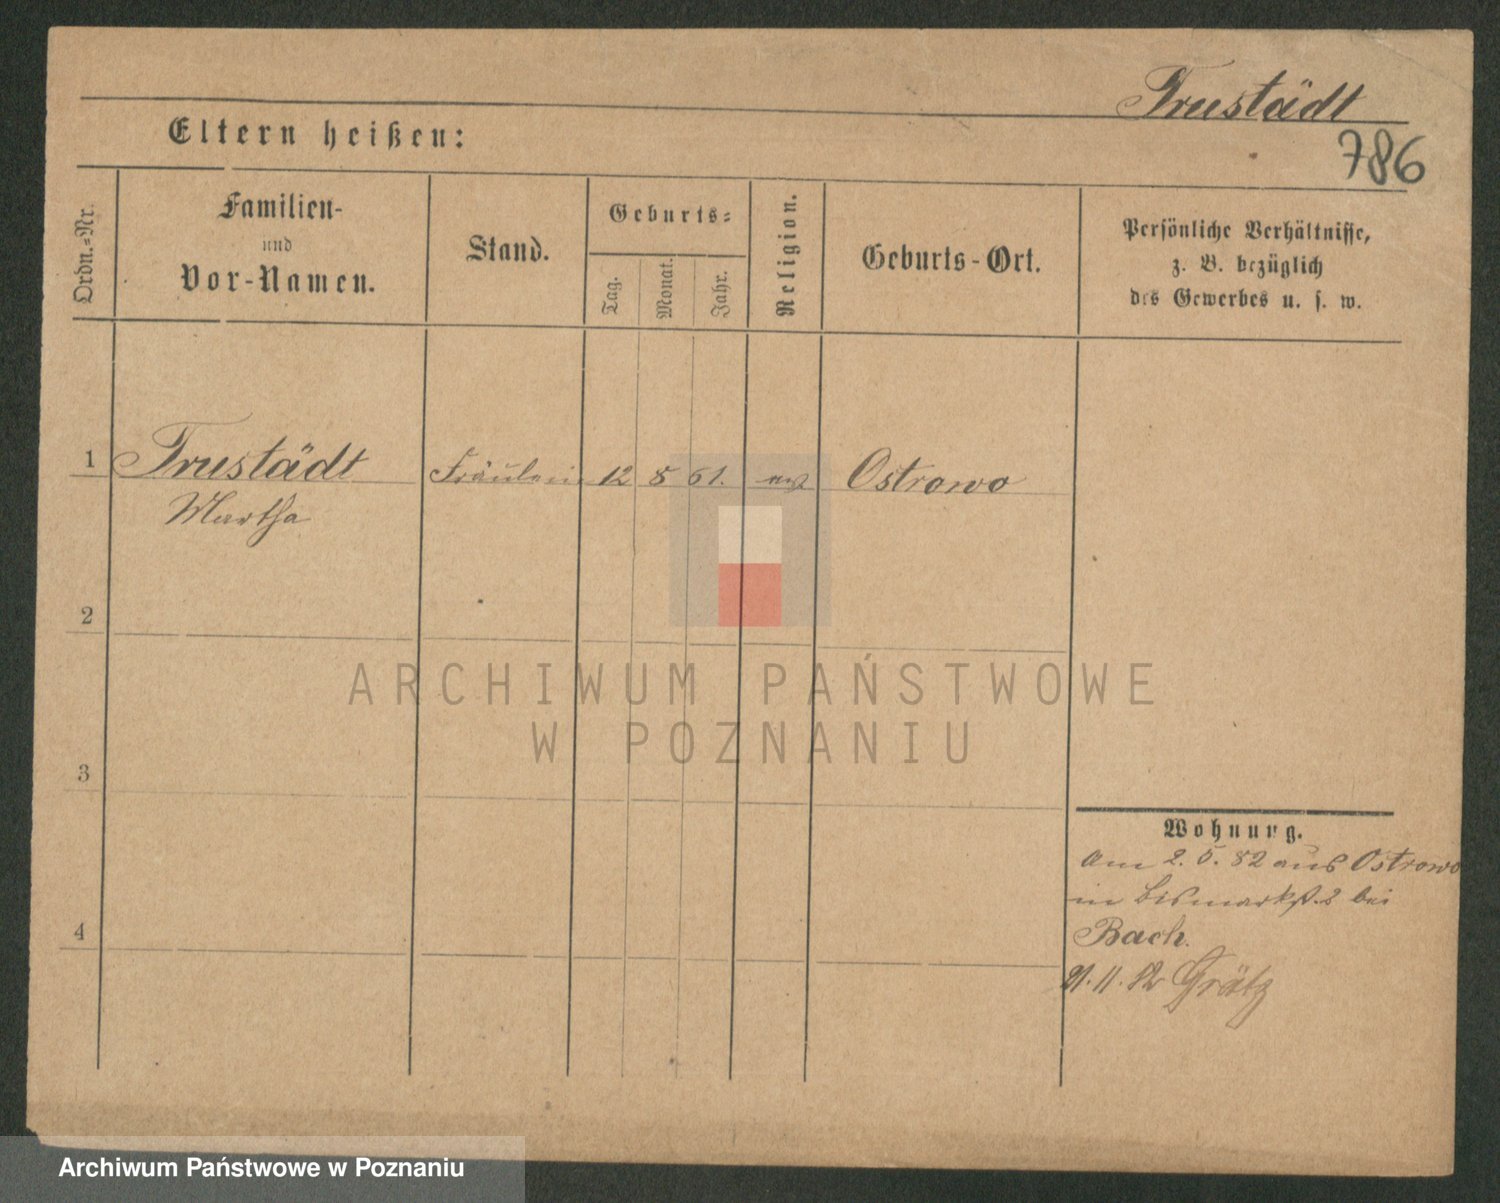 Trustädt
786
Eltern heißen:
Ordn.-Nr.
Familien-
und
Vor-Namen.
Stand.
Geburts-
Tag.
Monat.
Jahr.
Religion.
Geburts-Ort.
Persönliche Verhältnisse,
z. B. bezüglich
des Gewerbes u. s. w.
1 Trustädt Fräulein 12 8 61. Ostrowo
Martha
2
ARCHIWUM PAŃSTWOWE
W POZNANIU
3
Wohnung.
Am 2. 5. 82 aus Ostrowo
in Bismarkst. 2 bei
4
Bach.
21. 11. 82 Grätz
Archiwum Państwowe w Poznaniu